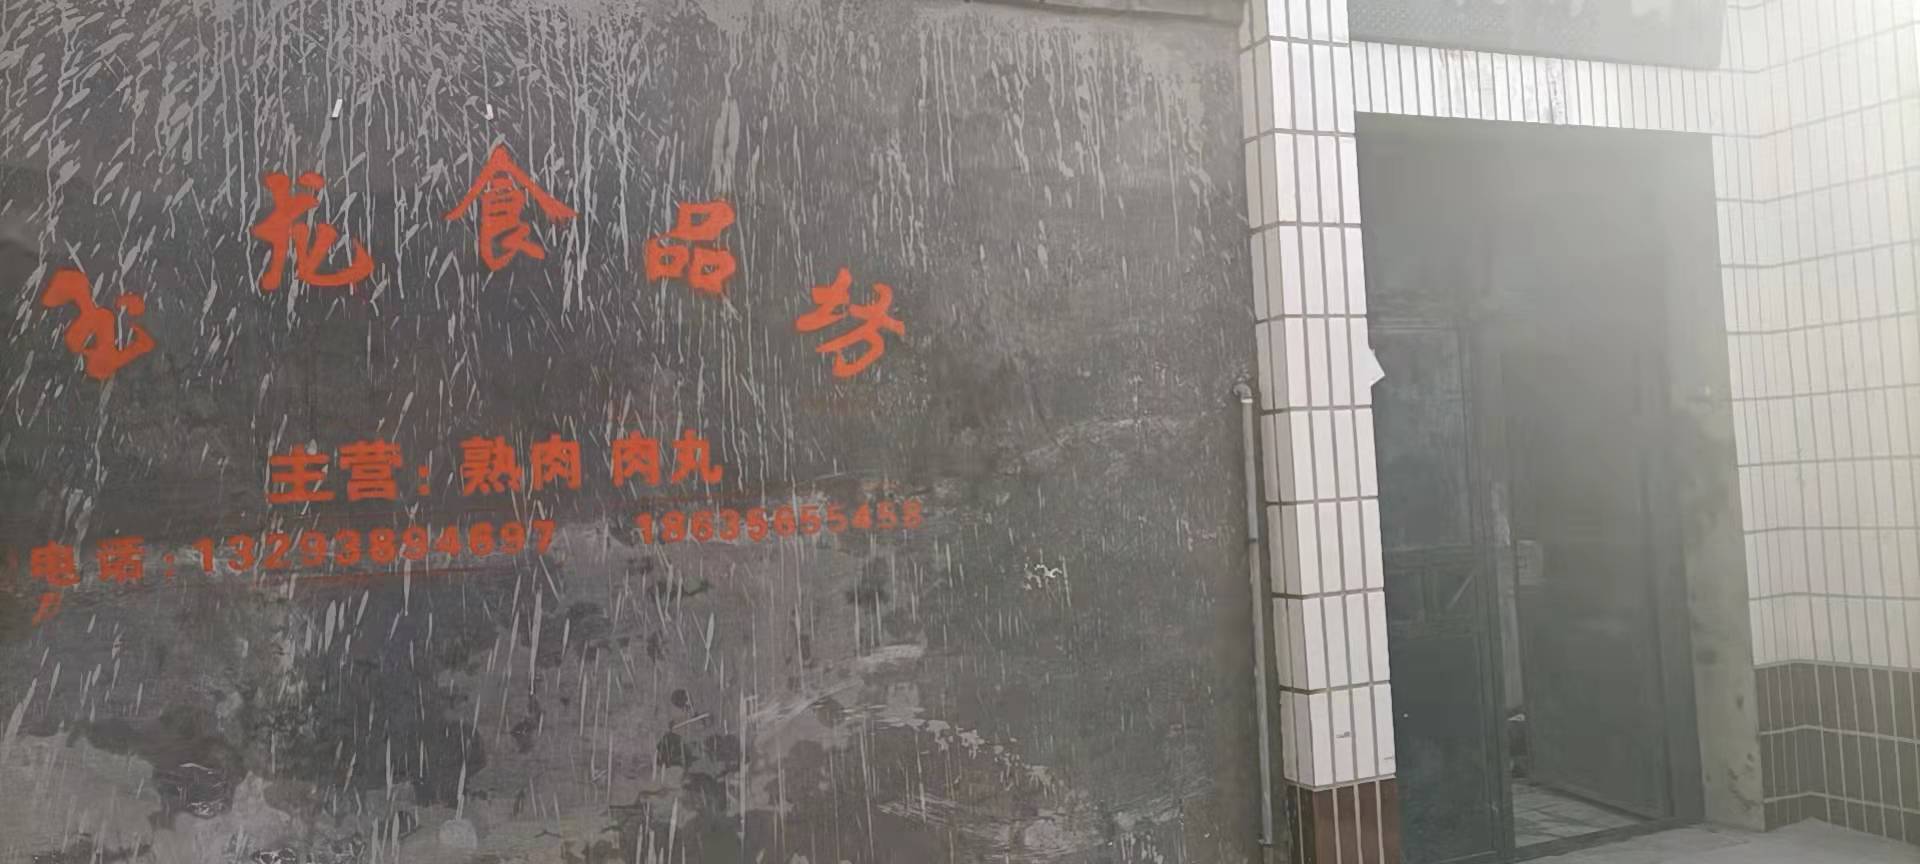 玉龙食品坊
主营：熟肉 肉丸
电话：13293894697 18635655458